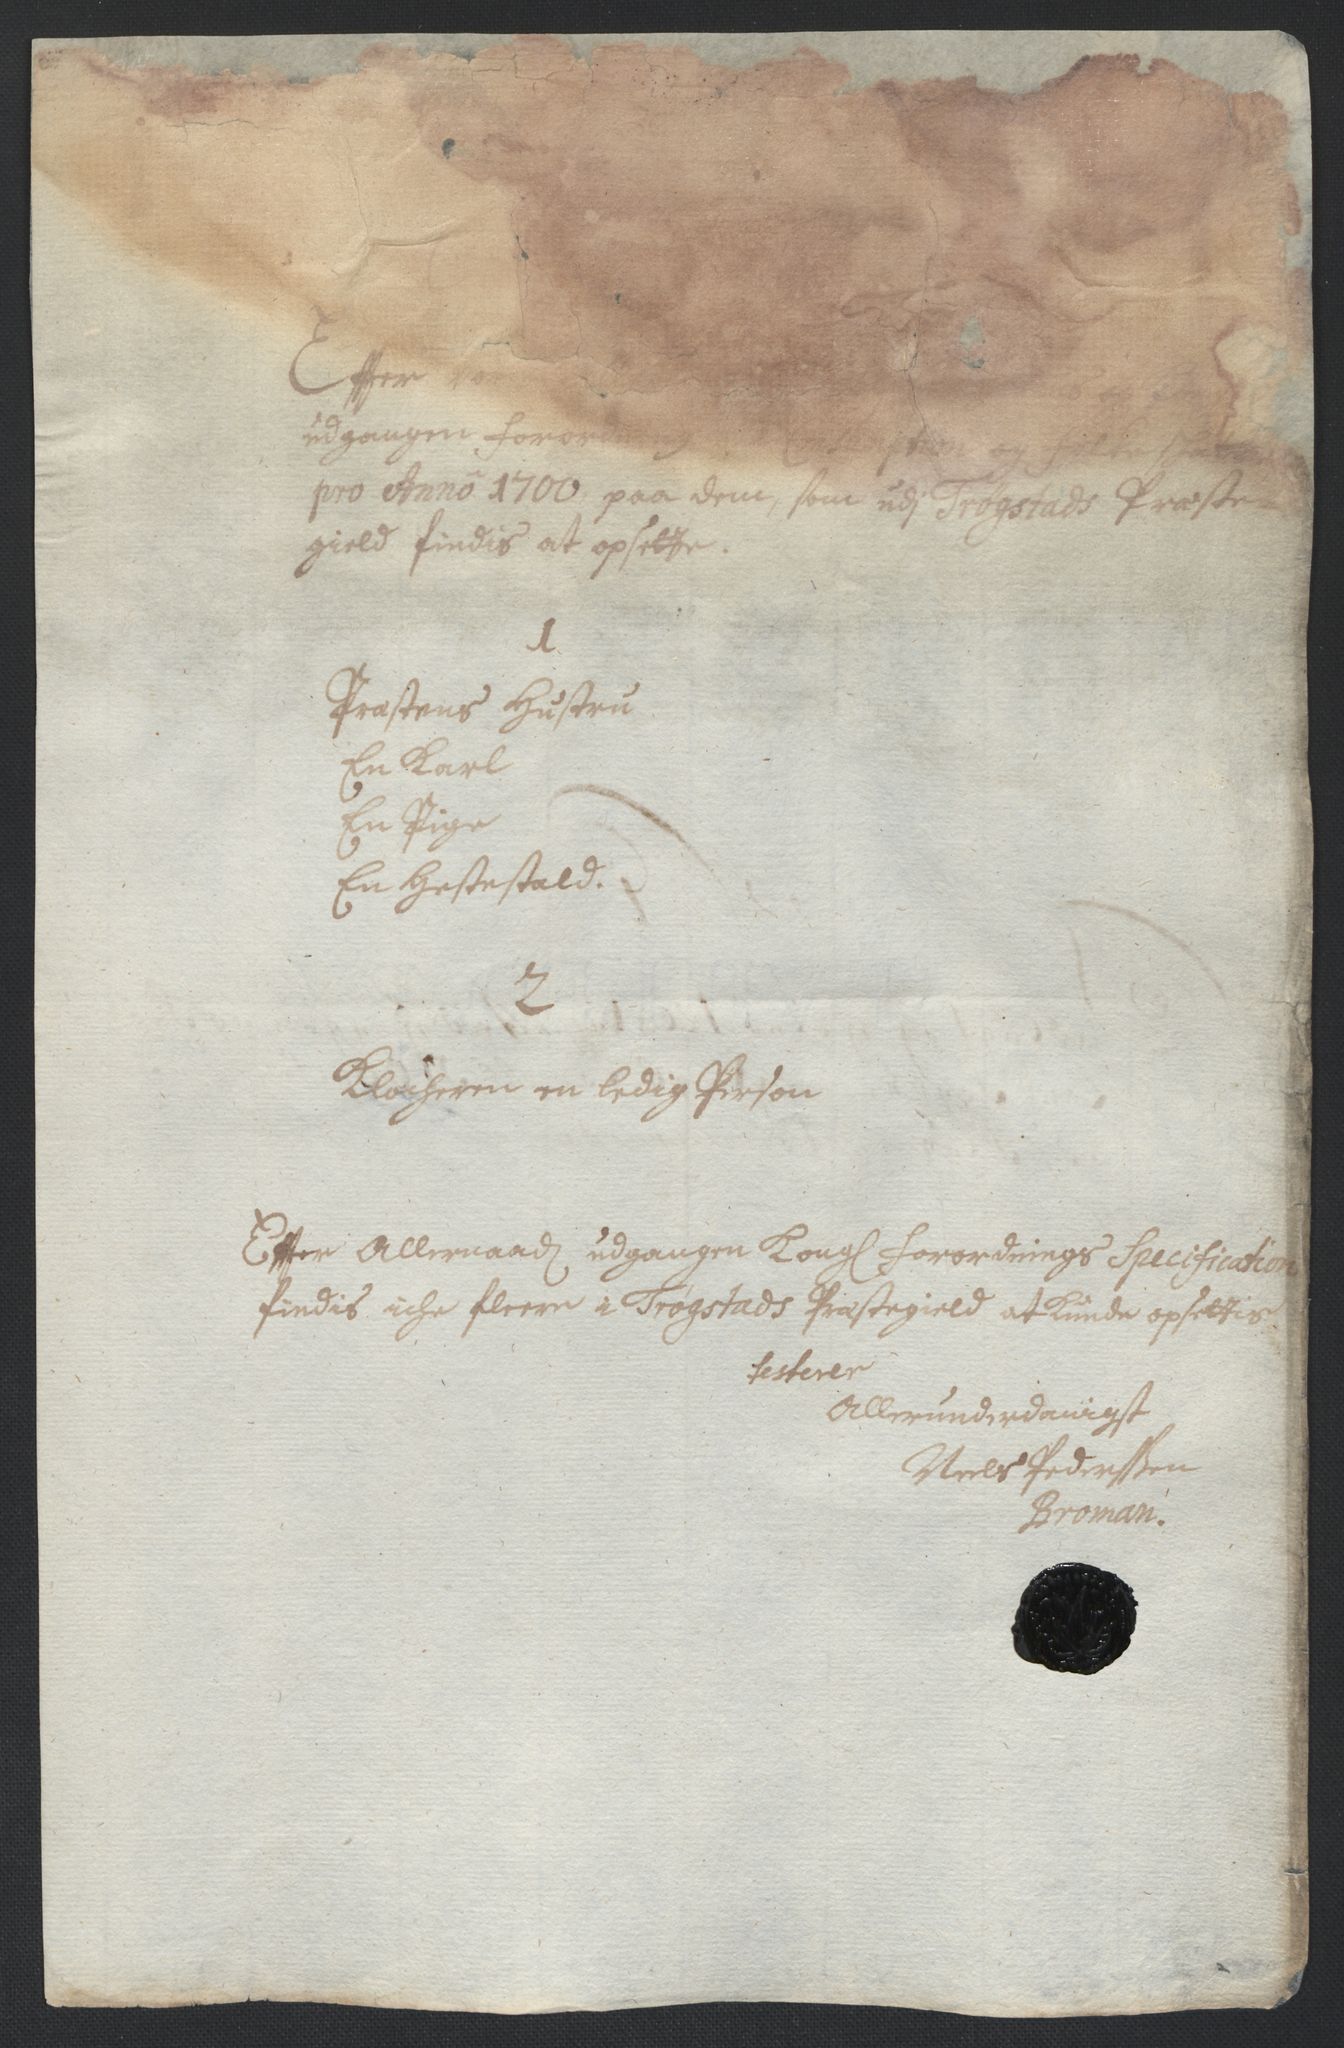 Efter
udgangen forordning og
pro Anno 1700 paa dem, som udj Trøgstads Præste-
gield findis at opsette.
1
Præstens Hustru
En Karl
En Pige
En Hestestald.
2
Klocheren en ledig Person
Efter Allernaad udgangen Kongl forordnings Specification
findis iche fleere i Trøgstads Præstegield at kunde opsettis
testerer
Allerunderdanigst
Niels Pederssen
Broman.